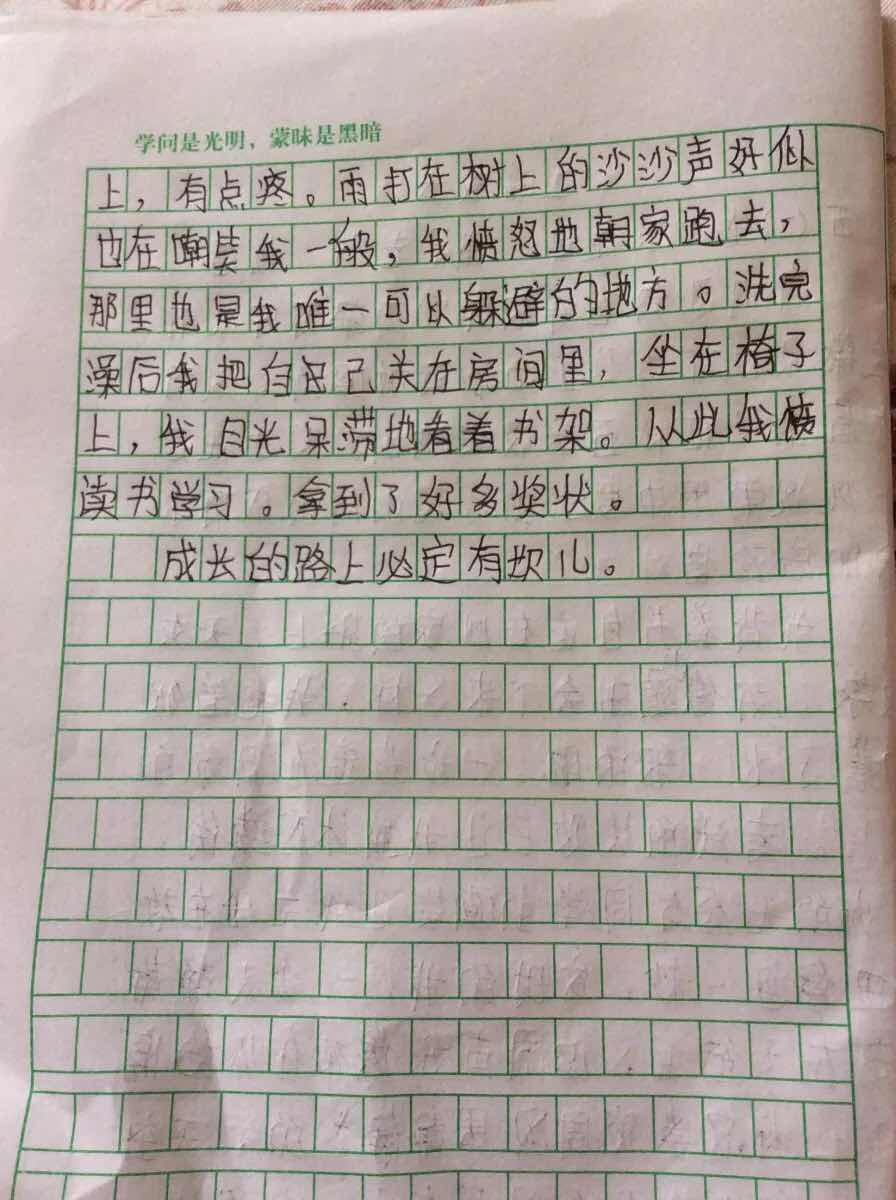 学问是光明，蒙昧是黑暗
上，有点疼。雨打在树上的沙沙声好似
也在嘲笑我一般，我愤怒地朝家跑去，
那里也是我唯一可以躲避的地方。洗完
澡后我把自己关在房间里，坐在椅子
上，我目光呆滞地看着书架。从此我愤
读书学习。拿到了好多奖状。
成长的路上必定有坎儿。